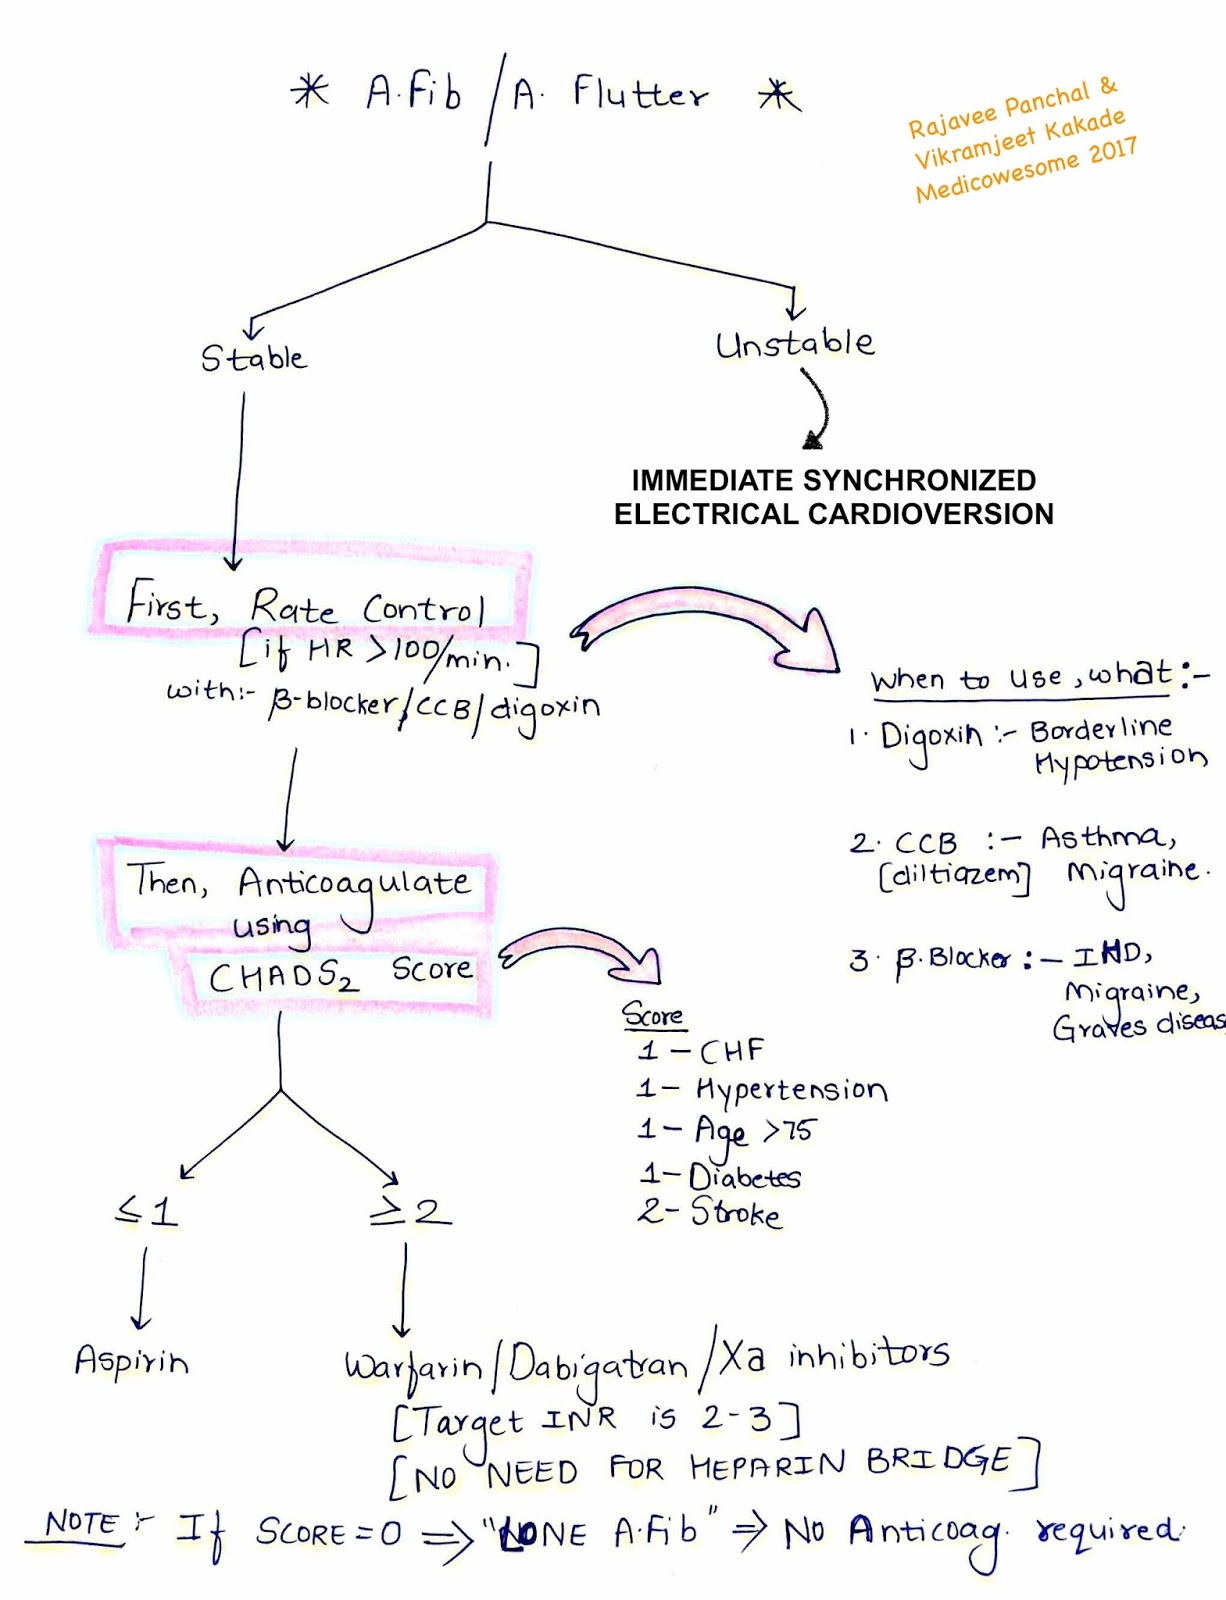 * A.Fib / A. Flutter *
Rajavee Panchal &
Vikramjeet Kakade
Medicowesome 2017
Stable
Unstable
IMMEDIATE SYNCHRONIZED
ELECTRICAL CARDIOVERSION
First, Rate Control
[if HR >100/min.]
with:- β-blocker/CCB/digoxin
When to use, what:-
1. Digoxin :- Borderline
Hypotension
2. CCB :- Asthma,
[diltiazem] Migraine.
3. β.Blocker :- IHD,
Migraine,
Graves diseas
Then, Anticoagulate
using
CHADS₂ Score
Score
1 - CHF
1 - Hypertension
1 - Age >75
1 - Diabetes
2 - Stroke
≤1
≥2
Aspirin
Warfarin/Dabigatran/Xa inhibitors
[Target INR is 2-3]
[NO NEED FOR HEPARIN BRIDGE]
NOTE :- If SCORE=0 ⇒ "LONE A.Fib" ⇒ No Anticoag. required.